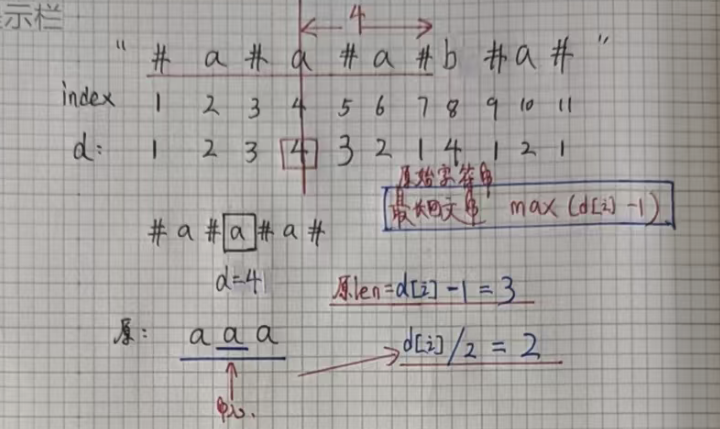 示栏
4
" # a # a # a # b # a # "
index 1 2 3 4 5 6 7 8 9 10 11
d: 1 2 3 4 3 2 1 4 1 2 1
原始字符串
最长回文串 max (d[i] -1)
# a # a # a #
d=4
原len=d[i]-1=3
原: a a a
d[i]/2 = 2
中心.